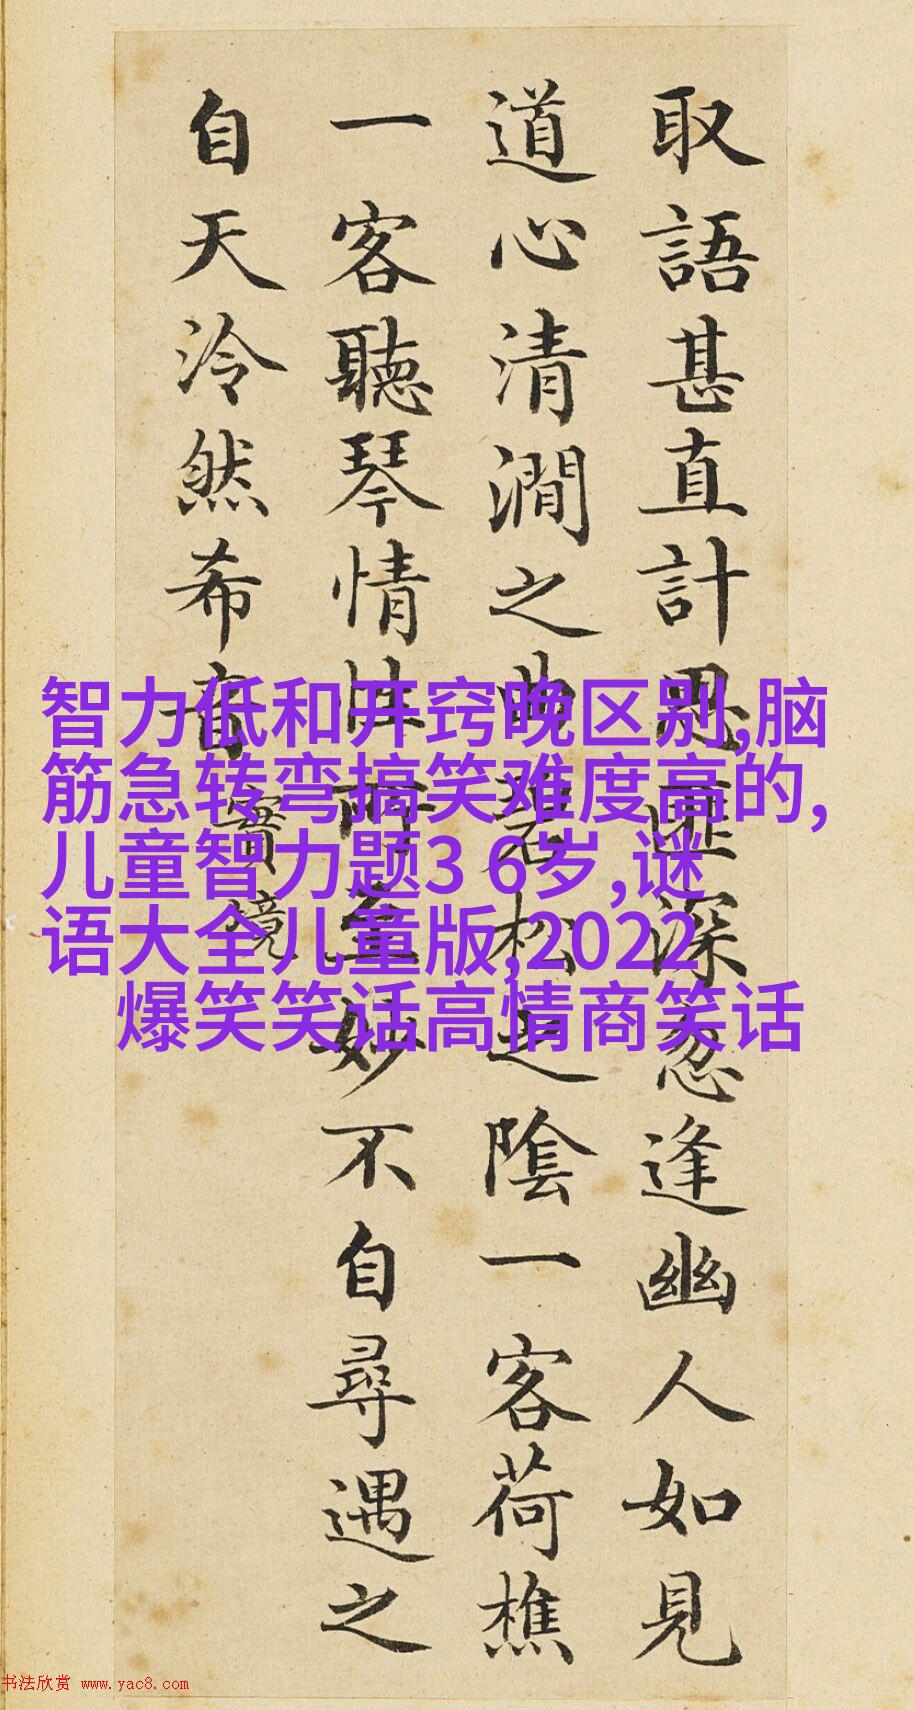 取語甚直計思匪深忽逢幽人如見
道心清澗之曲碧松之陰一客荷樵
一客聽琴情性所至妙不自尋遇之
自天泠然希音
實境
智力低和开窍晚区别,脑
筋急转弯搞笑难度高的,
儿童智力题3 6岁,谜
语大全儿童版,2022
爆笑笑话高情商笑话
书法欣赏 www.yac8.com